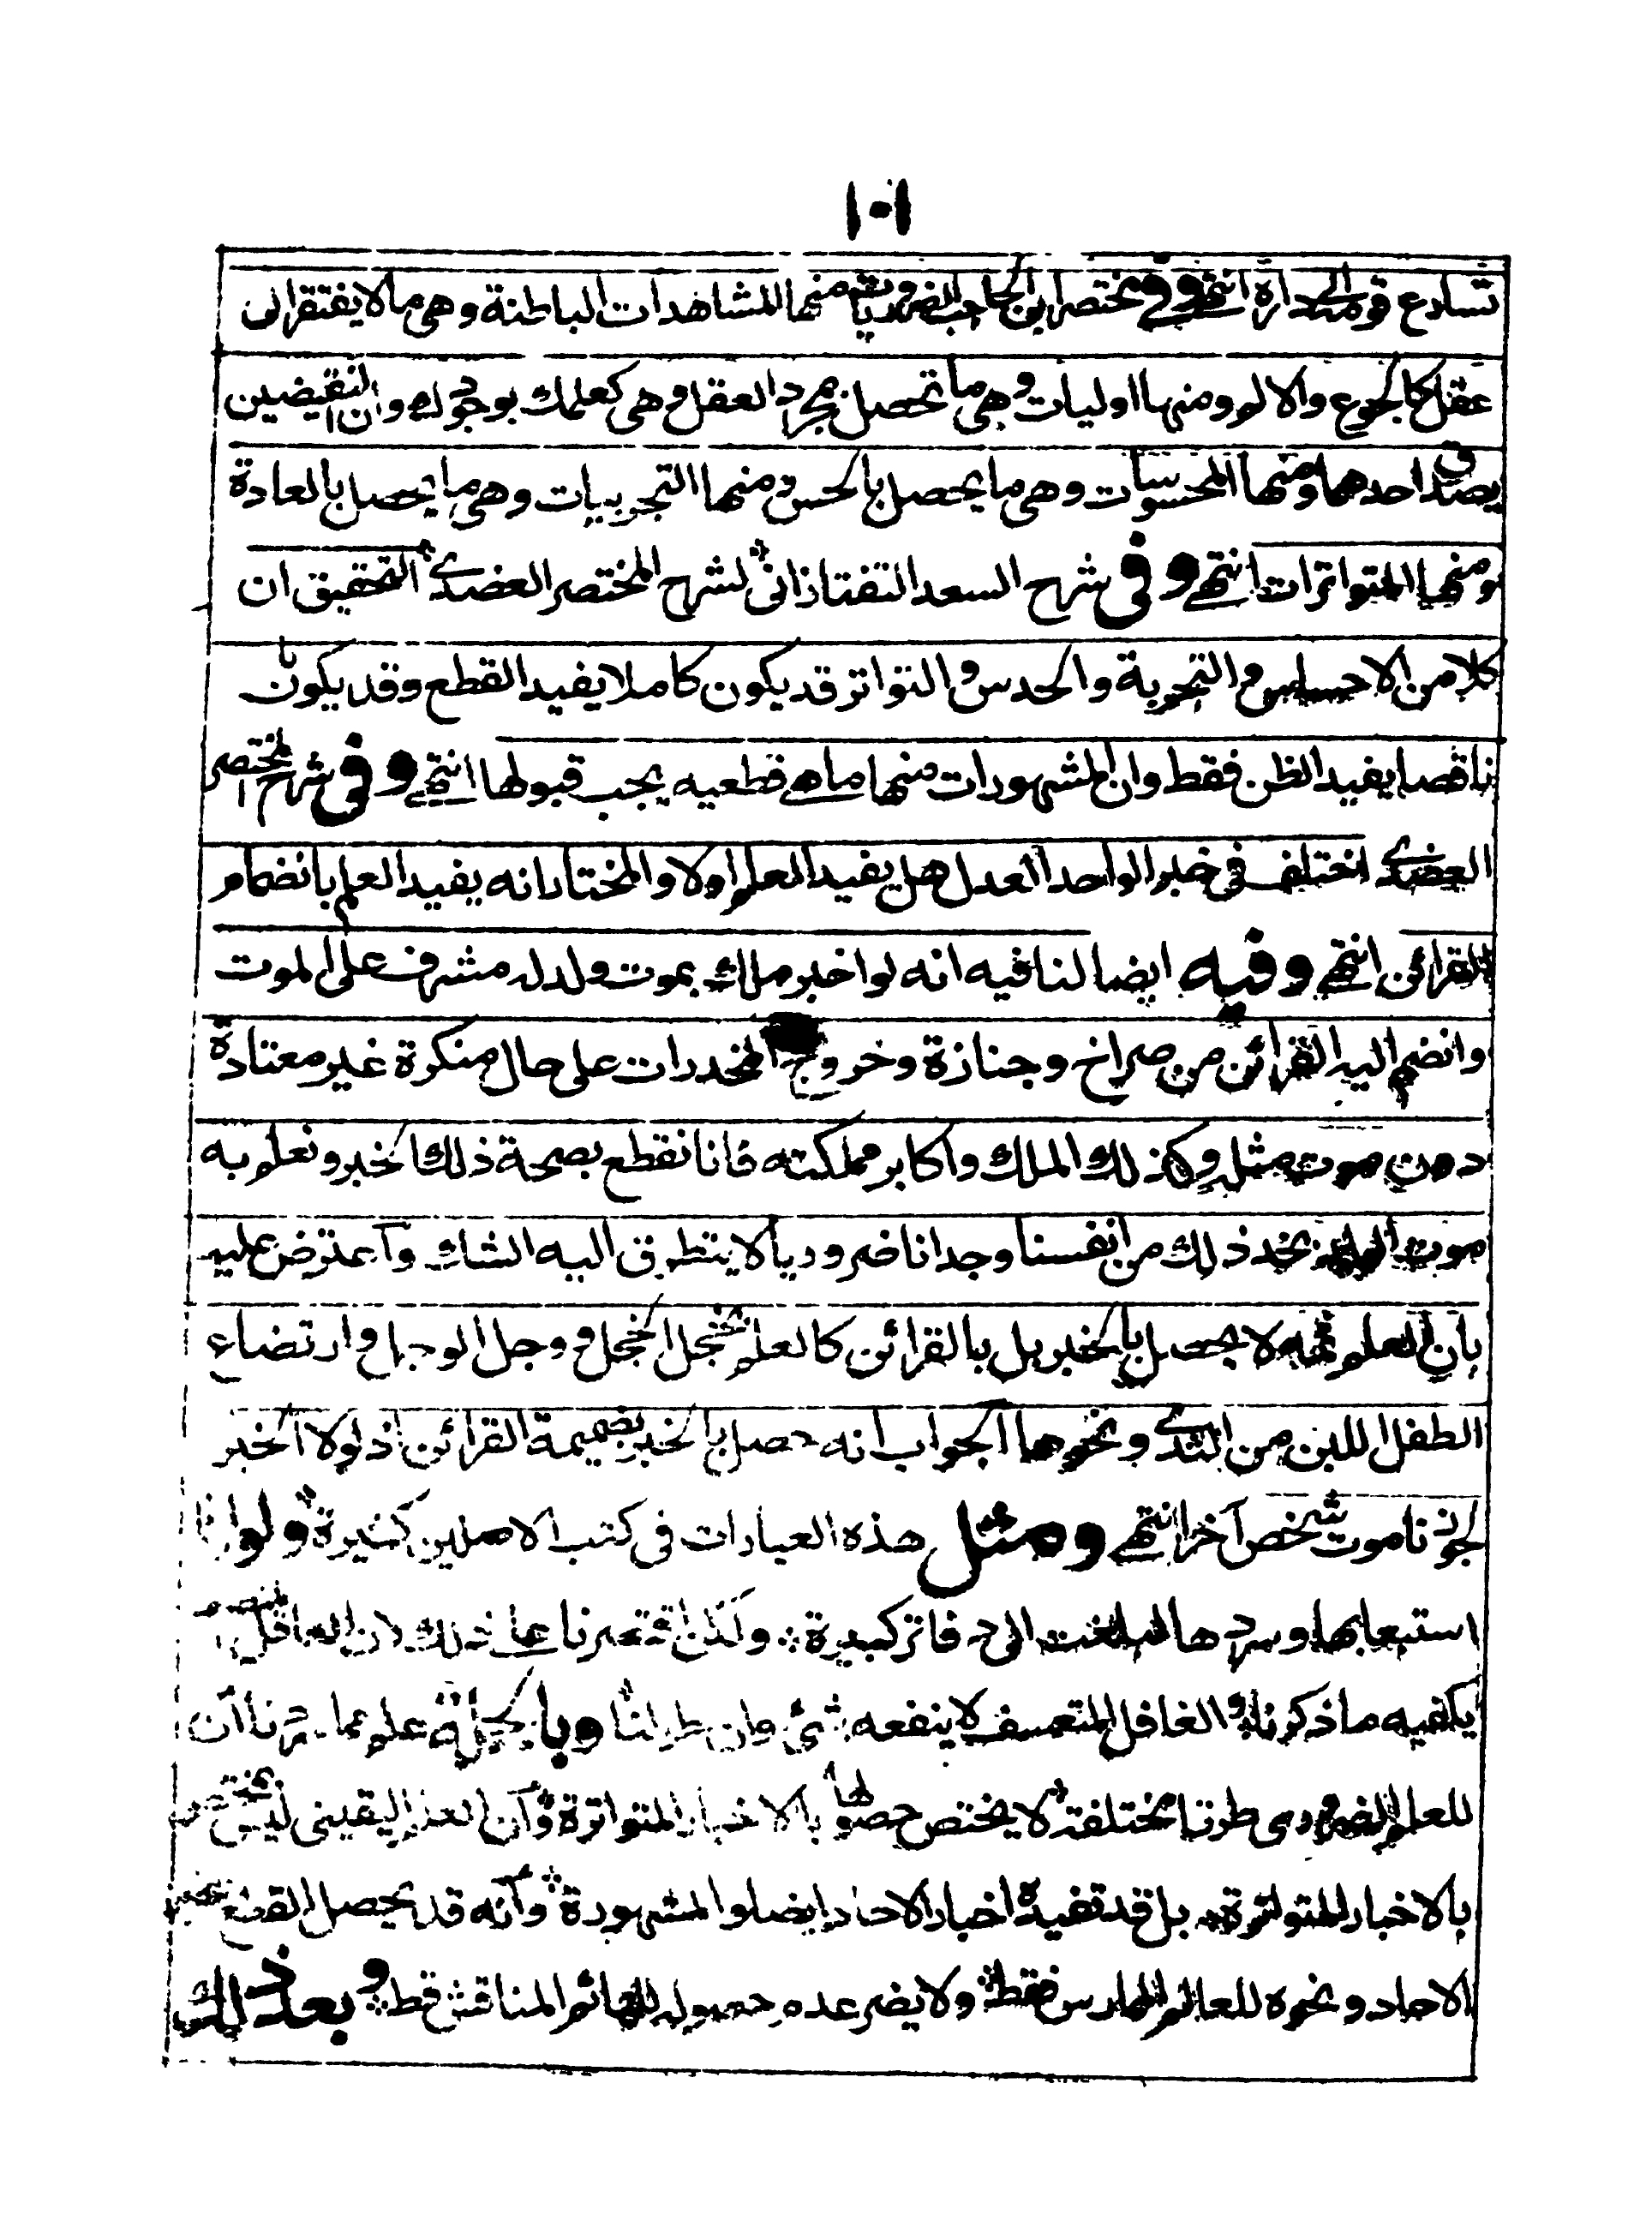 ١٠١
تسارع قوم الى داره انتهى وفى مختصر ابن الحاجب الضروريات منها المشاهدات الباطنة وهى ما لا يفتقر الى
عقل كالجوع والالم ومنها اوليات وهى ما تحصل بمجرد العقل وهى كعلمك بوجودك وان النقيضين
يصدق احدهما ومنها المحسوسات وهى ما يحصل بالحس ومنها التجربيات وهى ما يحصل بالعادة
ومنها المتواترات انتهى وفى شرح السعد التفتازانى لشرح المختصر العضدى التحقيق ان
كلا من الاحساس والتجربة والحدس والتواتر قد يكون كاملا يفيد القطع وقد يكون
ناقصا يفيد الظن فقط وان المشهورات منها ما هى قطعيه يجب قبولها انتهى وفى شرح مختصر
العضدى اختلف فى خبر الواحد العدل هل يفيد العلم اولا والمختار انه يفيد العلم بانضمام
القرائن انتهى وفيه ايضا لنا فيه انه لو اخبر ملك بموت ولد له مشرف على الموت
وانضم اليه القرائن من صراخ وجنازة وخروج المخدرات على حال منكرة غير معتادة
دون موت مثله وكذلك الملك واكابر مملكته فانا نقطع بصحة ذلك الخبر ونعلم به
موت الولد نجد ذلك من انفسنا وجدانا ضروريا لا يتطرق اليه الشك واعترض عليه
بان العلم ثمه لا يحصل بالخبر بل بالقرائن كالعلم بخجل الخجل ووجل الوجل وارتضاع
الطفل اللبن من الثدى ونحوها الجواب انه حصل بالخبر بضميمة القرائن اذ لولا الخبر
لجوزنا موت شخص آخر انتهى ومثل هذه العبارات فى كتب الاصليين كثيرة ولو انا
استيعابها وسردها لبلغت الى دفاتر كبيرة ولكن اقتصرنا على ذلك لان العاقل المنصف
يكفيه ما ذكرنا والغافل المتعسف لا ينفعه شئ وان طولنا وبالجملة علم مما ذكرنا ان
للعلم الضرورى طرقا مختلفة لا يختص حصولها بالاخبار المتواترة وان العلم اليقينى ليس مختص
بالاخبار المتواترة بل قد تفيده اخبار الاحاد ايضا والمشهورة وانه قد يحصل القطع بخبر
الاحاد ونحوه للعالم الممارس فقط ولا يضر عدم حصوله للهائم المناقش قط وبعد ذلك